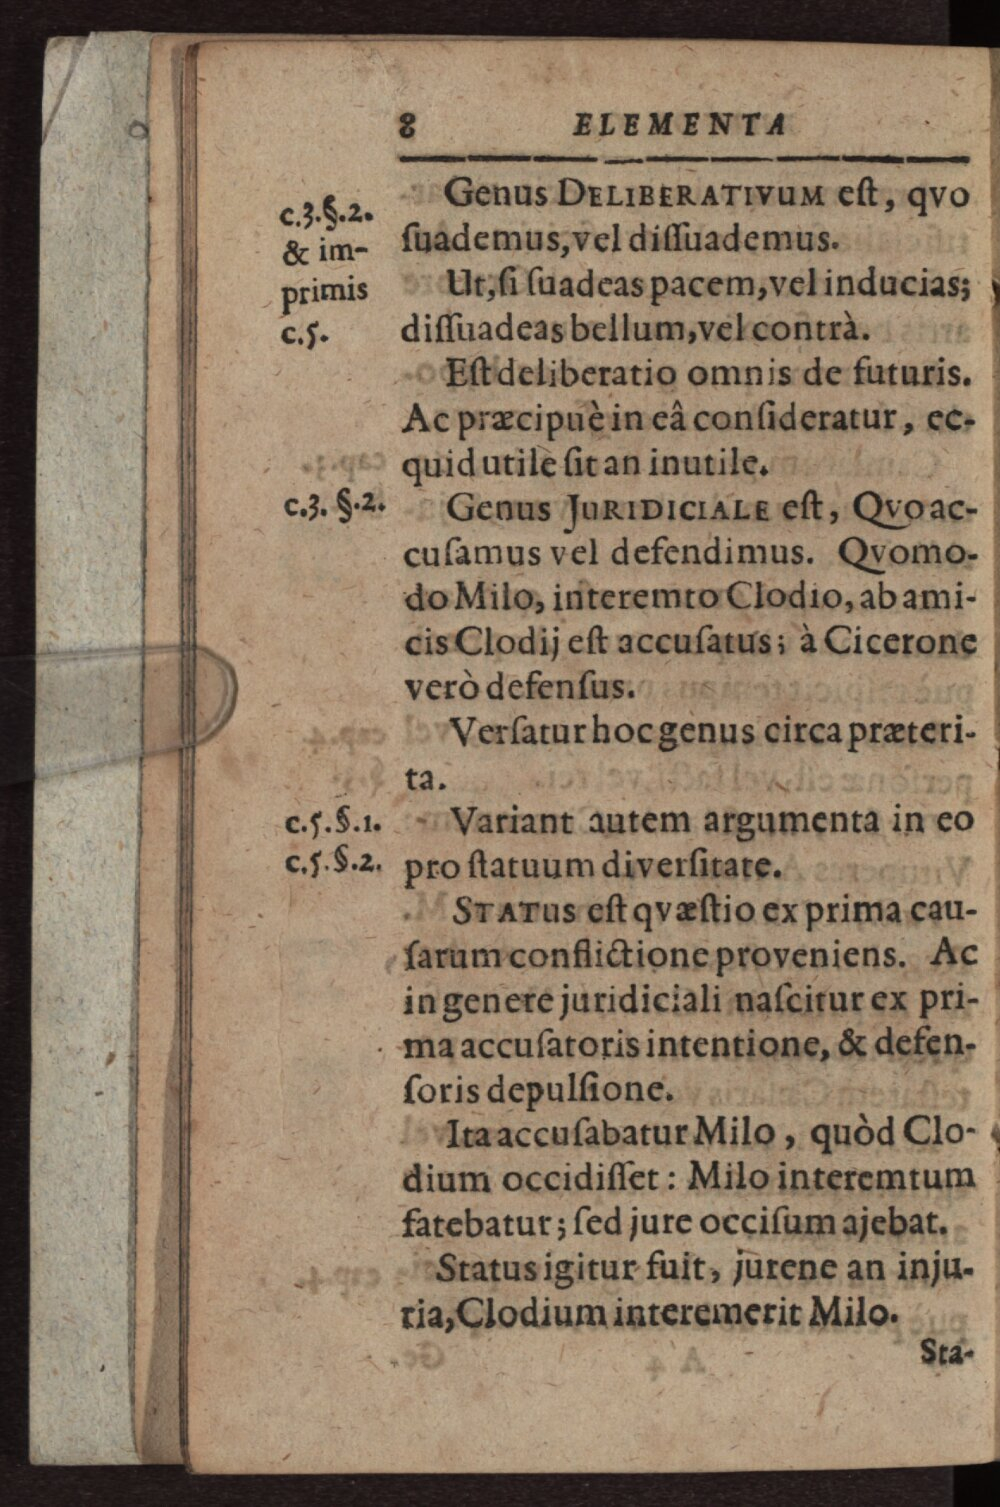 8 ELEMENTA
Genus DELIBERATIVUM eſt, qvo
c.3.§.2.
ſuademus, vel diſſuademus.
& im-
Ut, ſi ſuadeas pacem, vel inducias;
primis
diſſuadeas bellum, vel contrà.
c.5.
Eſt deliberatio omnis de futuris.
Ac præcipuè in eâ conſideratur, ec-
quid utile ſit an inutile.
c.3. §.2.
Genus JURIDICIALE eſt, Qvo ac-
cuſamus vel defendimus. Qvomo-
do Milo, interemto Clodio, ab ami-
cis Clodij eſt accuſatus; à Cicerone
verò defenſus.
Verſatur hoc genus circa præteri-
ta.
c.5.§.1.
Variant autem argumenta in eo
c.5.§.2.
pro ſtatuum diverſitate.
STATUS eſt qvæſtio ex prima cau-
ſarum conflictione proveniens. Ac
in genere juridiciali naſcitur ex pri-
ma accuſatoris intentione, & defen-
ſoris depulſione.
Ita accuſabatur Milo, quòd Clo-
dium occidiſſet: Milo interemtum
fatebatur; ſed jure occiſum ajebat.
Status igitur fuit, jurene an inju-
ria, Clodium interemerit Milo.
Sta-